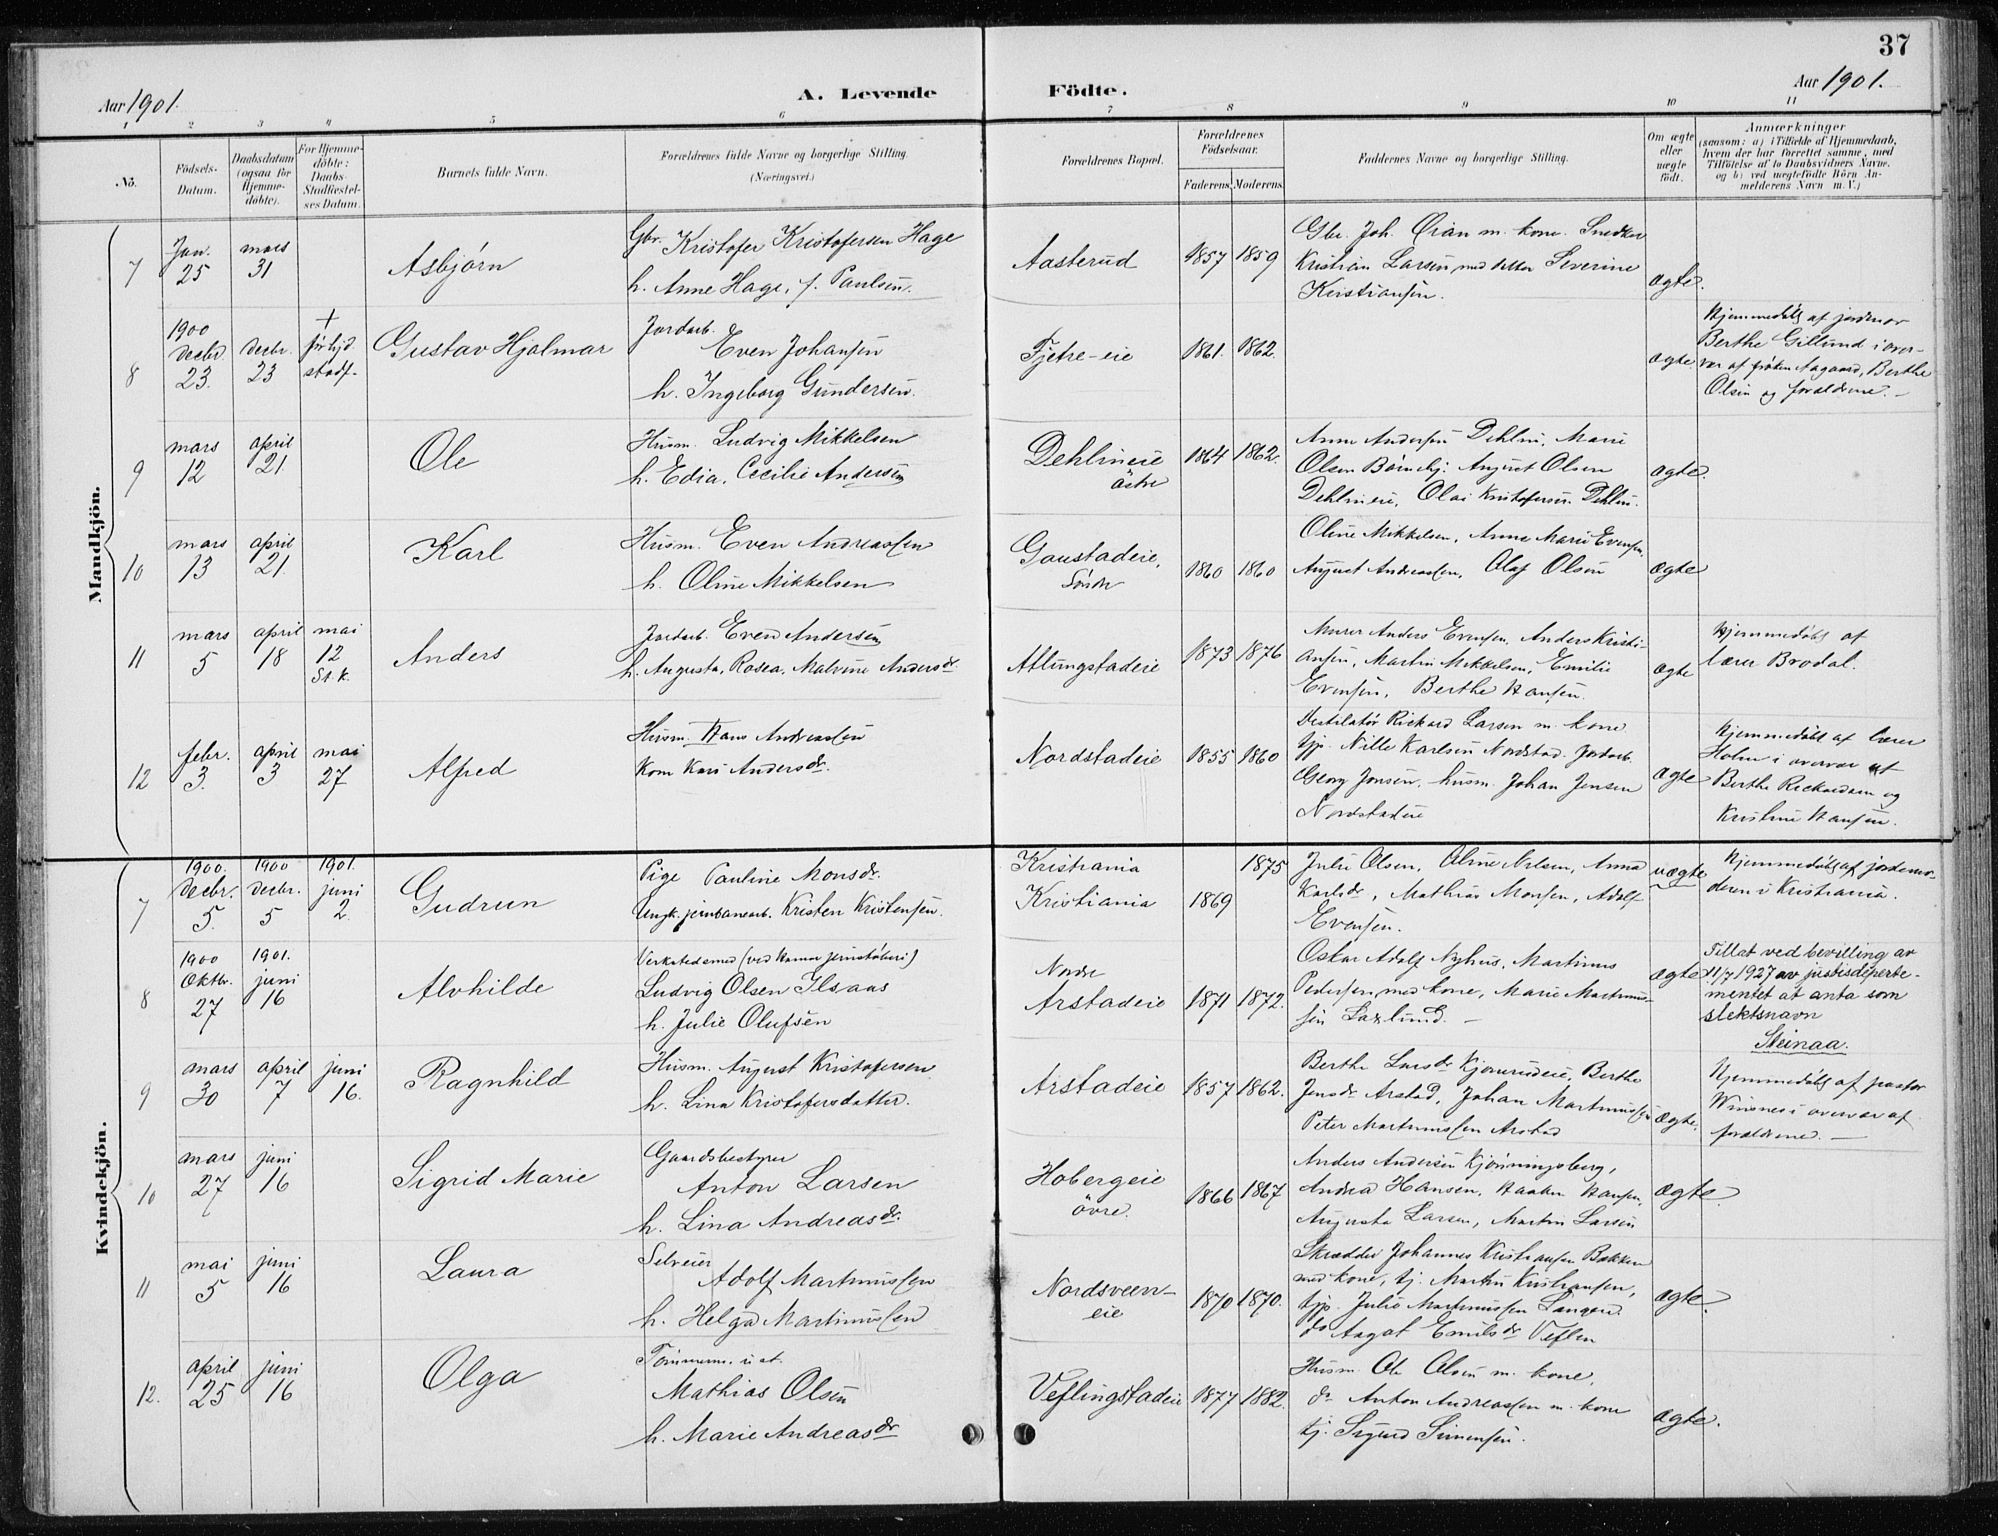 37
Aar 1901.
A. Levende Födte.
Aar 1901.
1 2 3 4 5 6 7 8 9 10 11
No.
Födsels-
Datum.
Daabsdatum
(ogsaa for
Hjemme-
döbte).
For Hjemme-
döbte:
Daabs-
Stadfæstel-
ses Datum.
Barnets fulde Navn.
Forældrenes fulde Navne og borgerlige Stilling.
(Næringsvei.)
Forældrenes Bopæl.
Forældrenes
Födselsaar.
Faderens. Moderens.
Faddernes Navne og borgerlige Stilling.
Om ægte
eller
uægte
födt.
Anmærkninger
(saasom: a) i Tilfælde af Hjemmedaab,
hvem der har forrettet samme, med
Tilföielse af to Daabsvidners Navne.
og b) ved uægtefödte Börn An-
melderens Navn m. V.)
Mandkjön.
7
Jan. 25
mars 31
Asbjørn
Gbr. Kristofer Kristofersen Hage
h. Anne Hage, f. Paulsen.
Aasterud
1857 1859
Gbr. Joh. m. kone. Snedker
Kristian Larsen med datter Severine
Kristiansen.
ægte.
8
1900
Decbr. 23.
Decbr. 23
+
Gustav Hjalmar
Jordarb.
Even Johansen
h. Ingeborg Gundersen.
Fjetre-eie
1861. 1862.
ægte
Hjemmedøbt af jordmor
Berthe Gillund i over-
vær af frøken Aagaard, Berthe
Olsen og forældrene. –
9
mars 12
april 21
Ole
Husm. Ludvig Mikkelsen
h. Edia, Cecilie Andersen
Dehlineie
östre
1864 1862.
Anne Andersen Dehlin, Marie
Olsen August Olsen
Dehlineie, Olai Kristofersen Dehlin.
ægte.
10
mars 13
april 21.
Karl
Husm. Even Andreassen
h. Oline Mikkelsen
Gaustadeie,
Söndre
1860 1860
Oline Mikkelsen, Anne Marie Evensen,
August Andreassen, Olaf Olsen
ægte
11
mars 5
april 18
mai 12
St. k.
Anders
Jordarb. Even Andersen
h. Augusta, Rosea, Malvine Andersdr.
Atlungstadeie
1873 1876
Murer Anders Evensen, Anders Kristi-
ansen, Martin Mikkelsen, Emilie
Evensen, Berthe Hansen.
ægte
Hjemmedøbt af
lærer Brodal.
12
febr. 3.
april 3
mai 27
Alfred
Husm. Hans Andreassen
Kone Kari Andersdr.
Nordstadeie
1855 1860
Destilatör Rickard Larsen m. kone
tjp. Nille Karlsen Nordstad. Jordarb.
Georg Jonsen, husm. Johan Jensen
Nordstadeie
ægte
Hjemmedøbt af lærer
Holm i overvær af
Berthe Rickardsen og
Kristine Hansen.
Kvindekjön.
7
1900. Decbr. 5.
1900 decbr. 5
1901. juni 2.
Gudrun
Pige Pauline Monsdr.
Ungk. jernbanearb. Kristen Kristensen.
Kristiania
Kristiania
1869
1875
Julie Olsen, Oline Nilsen, Anna
Karlsdr, Mathias Monsen, Adolf
Evensen.
uægte
Hjemmedøbt af jordemo-
deren i Kristiania.
8
1900 Oktbr. 27
1901. juni 16
Alvhilde
Verkstedsmed (ved Hamar jernstøberi)
Ludvig Olsen Ilsaas
h. Julie Olufsen
Nordre
Arstadeie
1871 1872.
Oskar Adolf Nyhus, Martinus
Pedersen, med kone, Marie Martinus-
sen Laxlund. –
ægte
Tillat ved bevilling av
11/7 1927 av justisdeparte-
mentet at anta som
slektsnavn
Steinaa.
9
mars 30
april 7
juni 16.
Ragnhild
Husm. August Kristofersen
h. Lina Kristofersdatter.
Arstadeie
1857 1862.
Berthe Larsdr Kjonerudeie, Berthe
Jensdr Arstad, Johan Martinussen
Peter Martinussen Arstad
ægte.
Hjemmedøbt af pastor
Winsnes i overvær af
forældrene. –
10
mars 27
juni 16
Sigrid Marie
Gaardsbestyrer
Anton Larsen
h. Lina Andreasdr.
Hobergeie
övre.
1866 1867
Anders Andersen Kjønningsberg,
Andrea Hansen, Haakon Hansen,
Augusta Larsen, Martin Larsen
ægte
11
mai 5
juni 16
Laura
Selveier
Adolf Martinussen
h. Helga Martinussen
Nordsveen-
eie
1870 1870.
Skrædder Johannes Kristiansen Bakken
med kone, tj. Martin Kristiansen,
tjp. Julie Martinussen
do Aagot Emilsdr Veflen
ægte.
12.
april 25
juni 16
Olga
Tömmerm.
Mathias Olsen
h. Marie Andreasdr
Veflingstadeie
1877 1882.
Husm. Ole Olsen m. kone.
do Anton Andreassen m. kone
tj. Sigurd Simensen.
ægte.